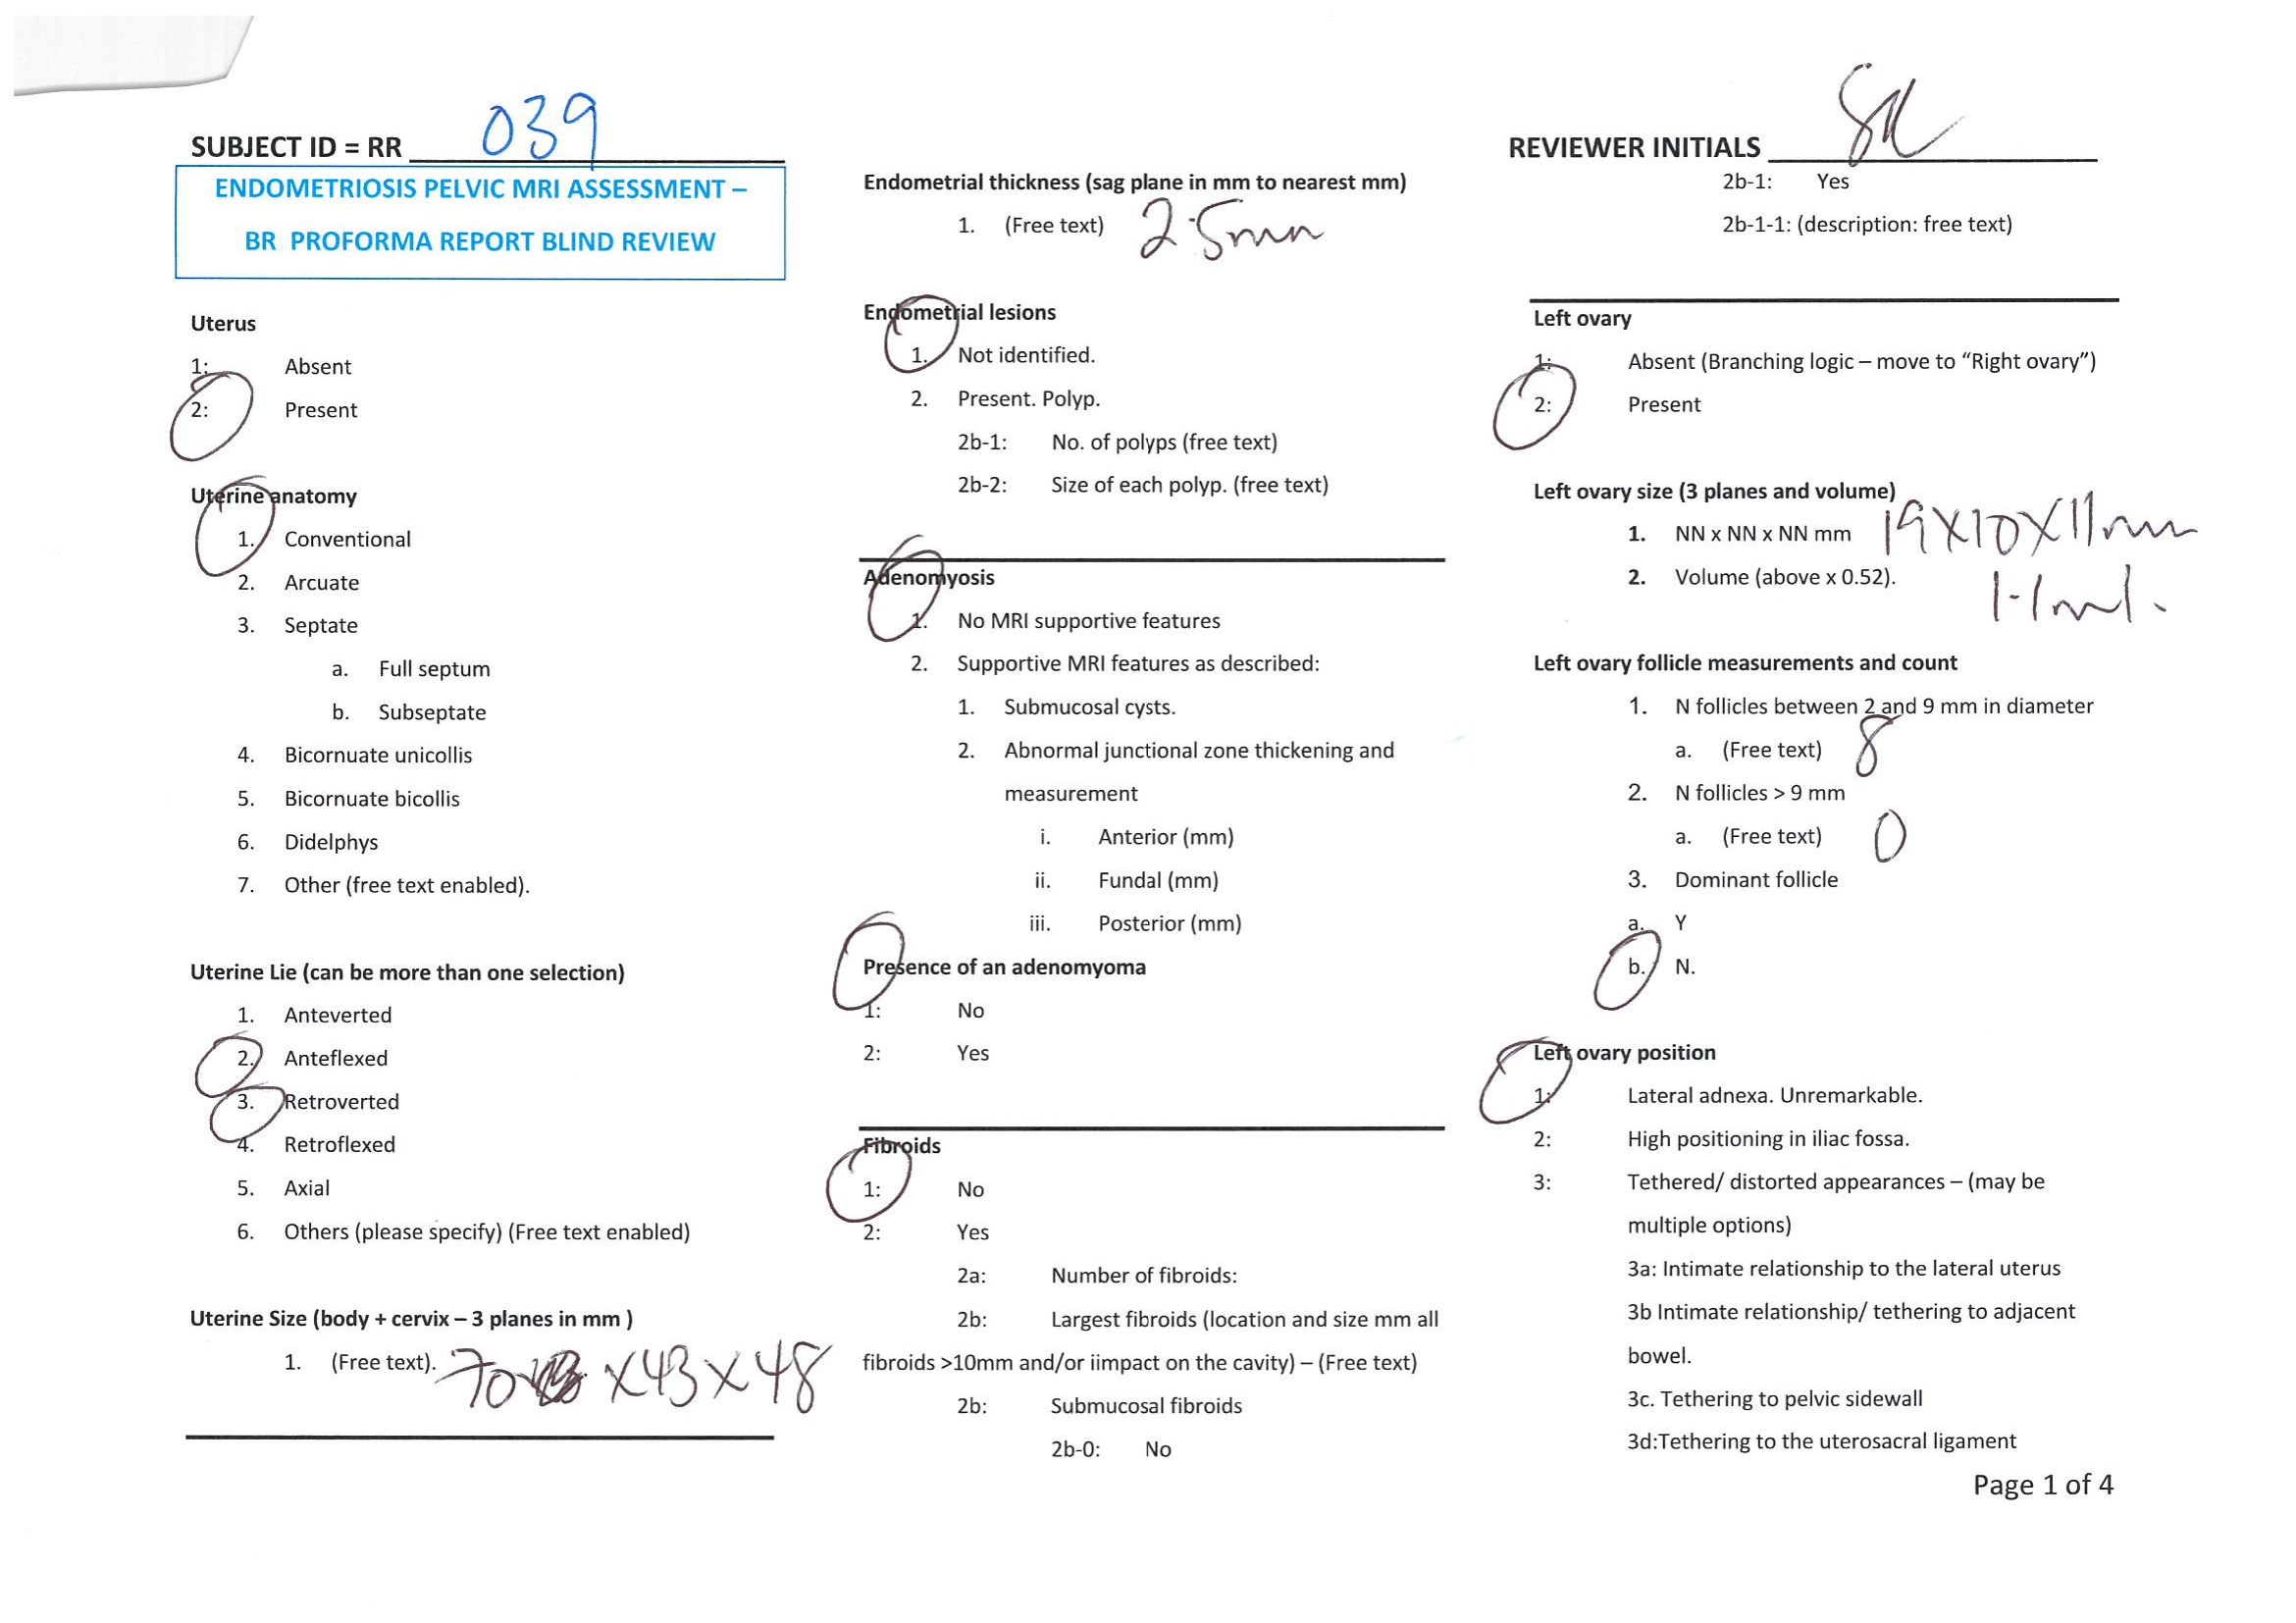 SUBJECT ID = RR 039
ENDOMETRIOSIS PELVIC MRI ASSESSMENT –
BR PROFORMA REPORT BLIND REVIEW
Uterus
1: Absent
2: Present
Uterine anatomy
1. Conventional
2. Arcuate
3. Septate
a. Full septum
b. Subseptate
4. Bicornuate unicollis
5. Bicornuate bicollis
6. Didelphys
7. Other (free text enabled).
Uterine Lie (can be more than one selection)
1. Anteverted
2. Anteflexed
3. Retroverted
4. Retroflexed
5. Axial
6. Others (please specify) (Free text enabled)
Uterine Size (body + cervix – 3 planes in mm )
1. (Free text). 70 x 43 x 48
Endometrial thickness (sag plane in mm to nearest mm)
1. (Free text) 2.5mm
Endometrial lesions
1. Not identified.
2. Present. Polyp.
2b-1: No. of polyps (free text)
2b-2: Size of each polyp. (free text)
Adenomyosis
1. No MRI supportive features
2. Supportive MRI features as described:
1. Submucosal cysts.
2. Abnormal junctional zone thickening and
measurement
i. Anterior (mm)
ii. Fundal (mm)
iii. Posterior (mm)
Presence of an adenomyoma
1: No
2: Yes
Fibroids
1: No
2: Yes
2a: Number of fibroids:
2b: Largest fibroids (location and size mm all
fibroids >10mm and/or iimpact on the cavity) – (Free text)
2b: Submucosal fibroids
2b-0: No
REVIEWER INITIALS
2b-1: Yes
2b-1-1: (description: free text)
Left ovary
1: Absent (Branching logic – move to “Right ovary”)
2: Present
Left ovary size (3 planes and volume)
1. NN x NN x NN mm 19x10x11mm
2. Volume (above x 0.52). 1.1ml.
Left ovary follicle measurements and count
1. N follicles between 2 and 9 mm in diameter
a. (Free text) 8
2. N follicles > 9 mm
a. (Free text) 0
3. Dominant follicle
a. Y
b. N.
Left ovary position
1: Lateral adnexa. Unremarkable.
2: High positioning in iliac fossa.
3: Tethered/ distorted appearances – (may be
multiple options)
3a: Intimate relationship to the lateral uterus
3b Intimate relationship/ tethering to adjacent
bowel.
3c. Tethering to pelvic sidewall
3d:Tethering to the uterosacral ligament
Page 1 of 4